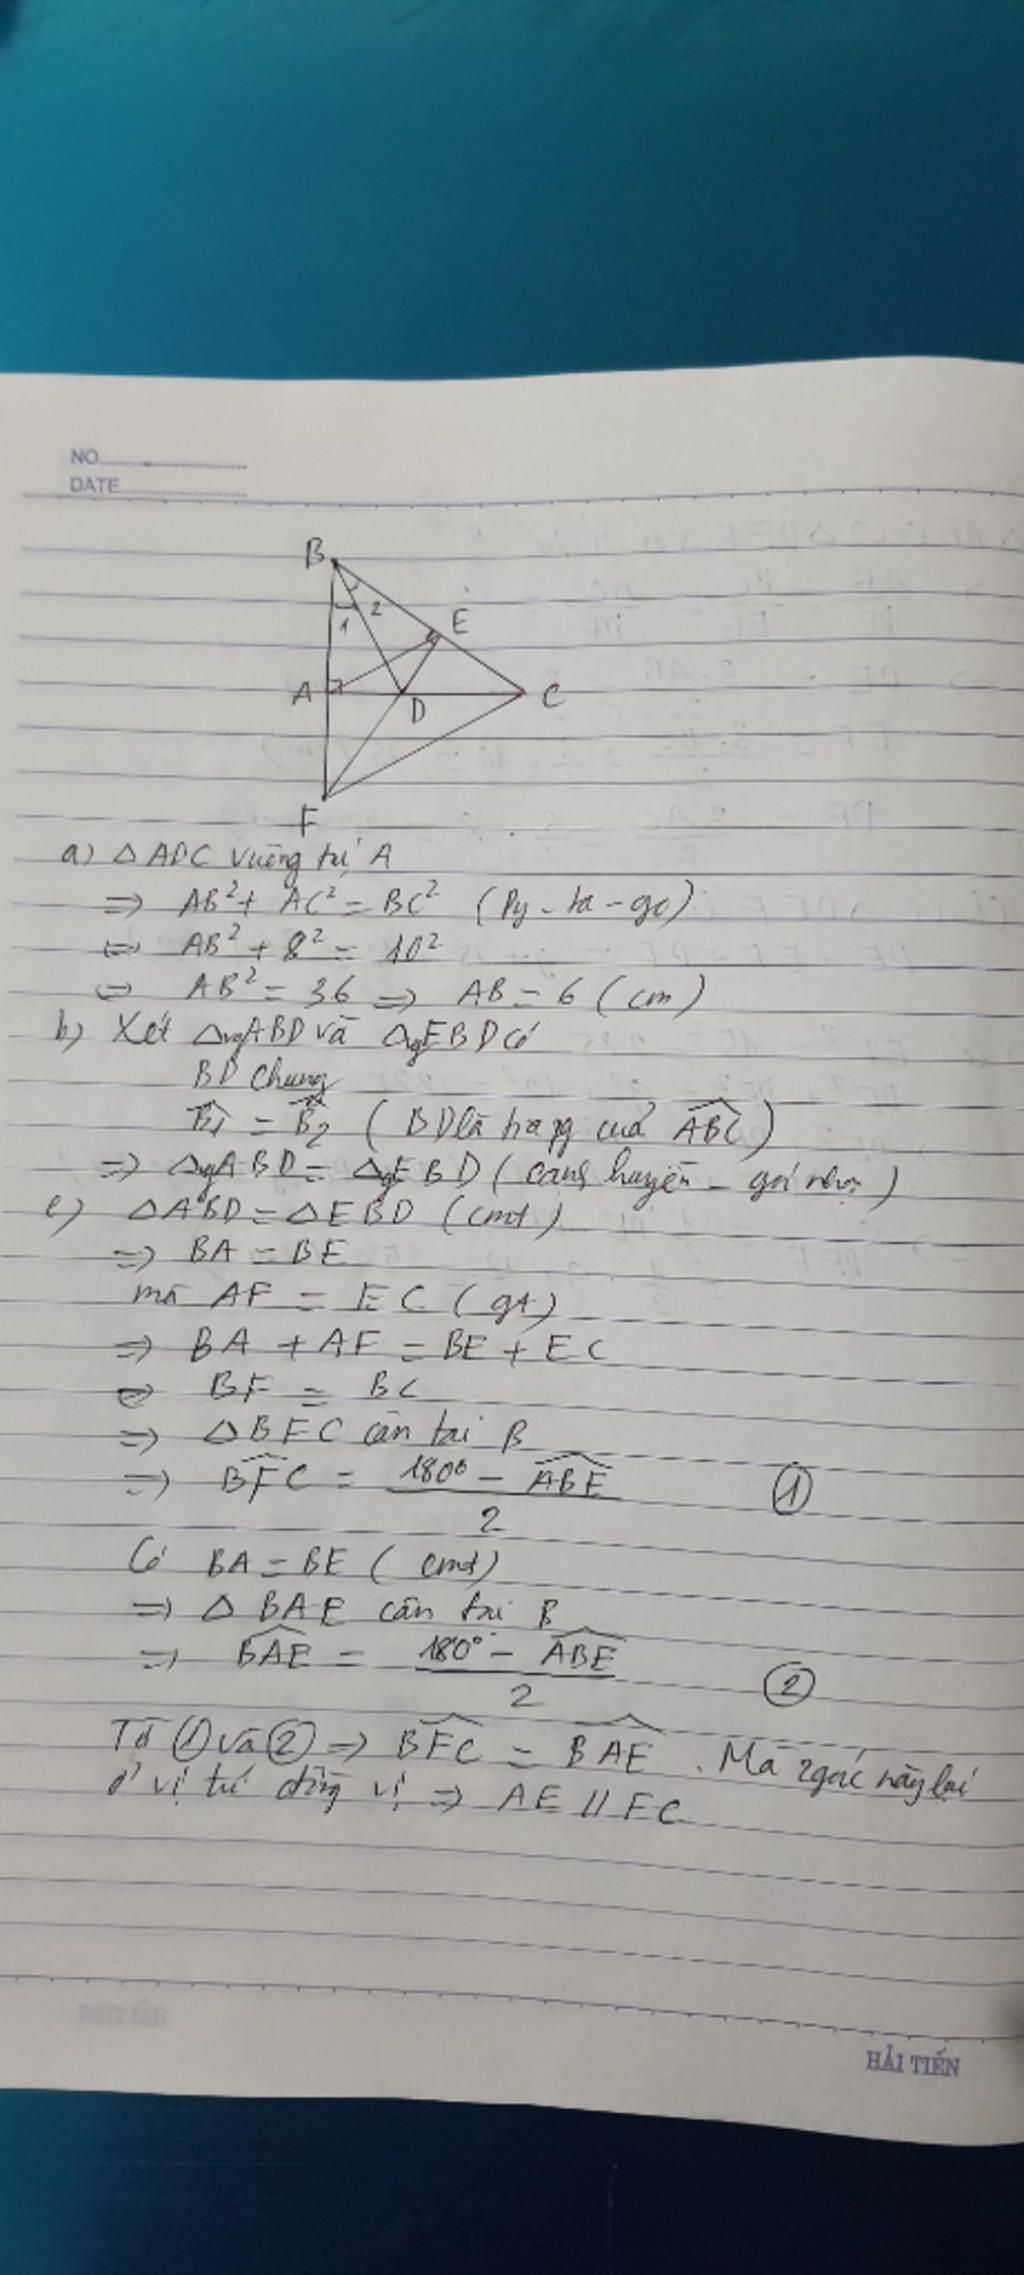 NO
DATE
B
1 2
E
A
D
C
F
a) △ ABC vuông tại A
=> AB² + AC² = BC² (Py-ta-go)
<=> AB² + 8² = 10²
<=> AB² = 36 => AB = 6 (cm)
b) Xét △vgABD và △vgEBD có
BD chung
B̂1 = B̂2 (BD là tia pg của ABC)
=> △vgABD = △vgEBD (cạnh huyền - góc nhọn)
c) △ABD = △EBD (cmt)
=> BA = BE
mà AF = EC (gt)
=> BA + AF = BE + EC
<=> BF = BC
=> △BFC cân tại B
=> BFC = (180° - ABE) / 2 ①
Có BA = BE (cmt)
=> △ BAE cân tại B
=> BAE = (180° - ABE) / 2 ②
Từ ① và ② => BFC = BAE. Mà 2 góc này lại
ở vị trí đồng vị => AE // FC
HẢI TIẾN